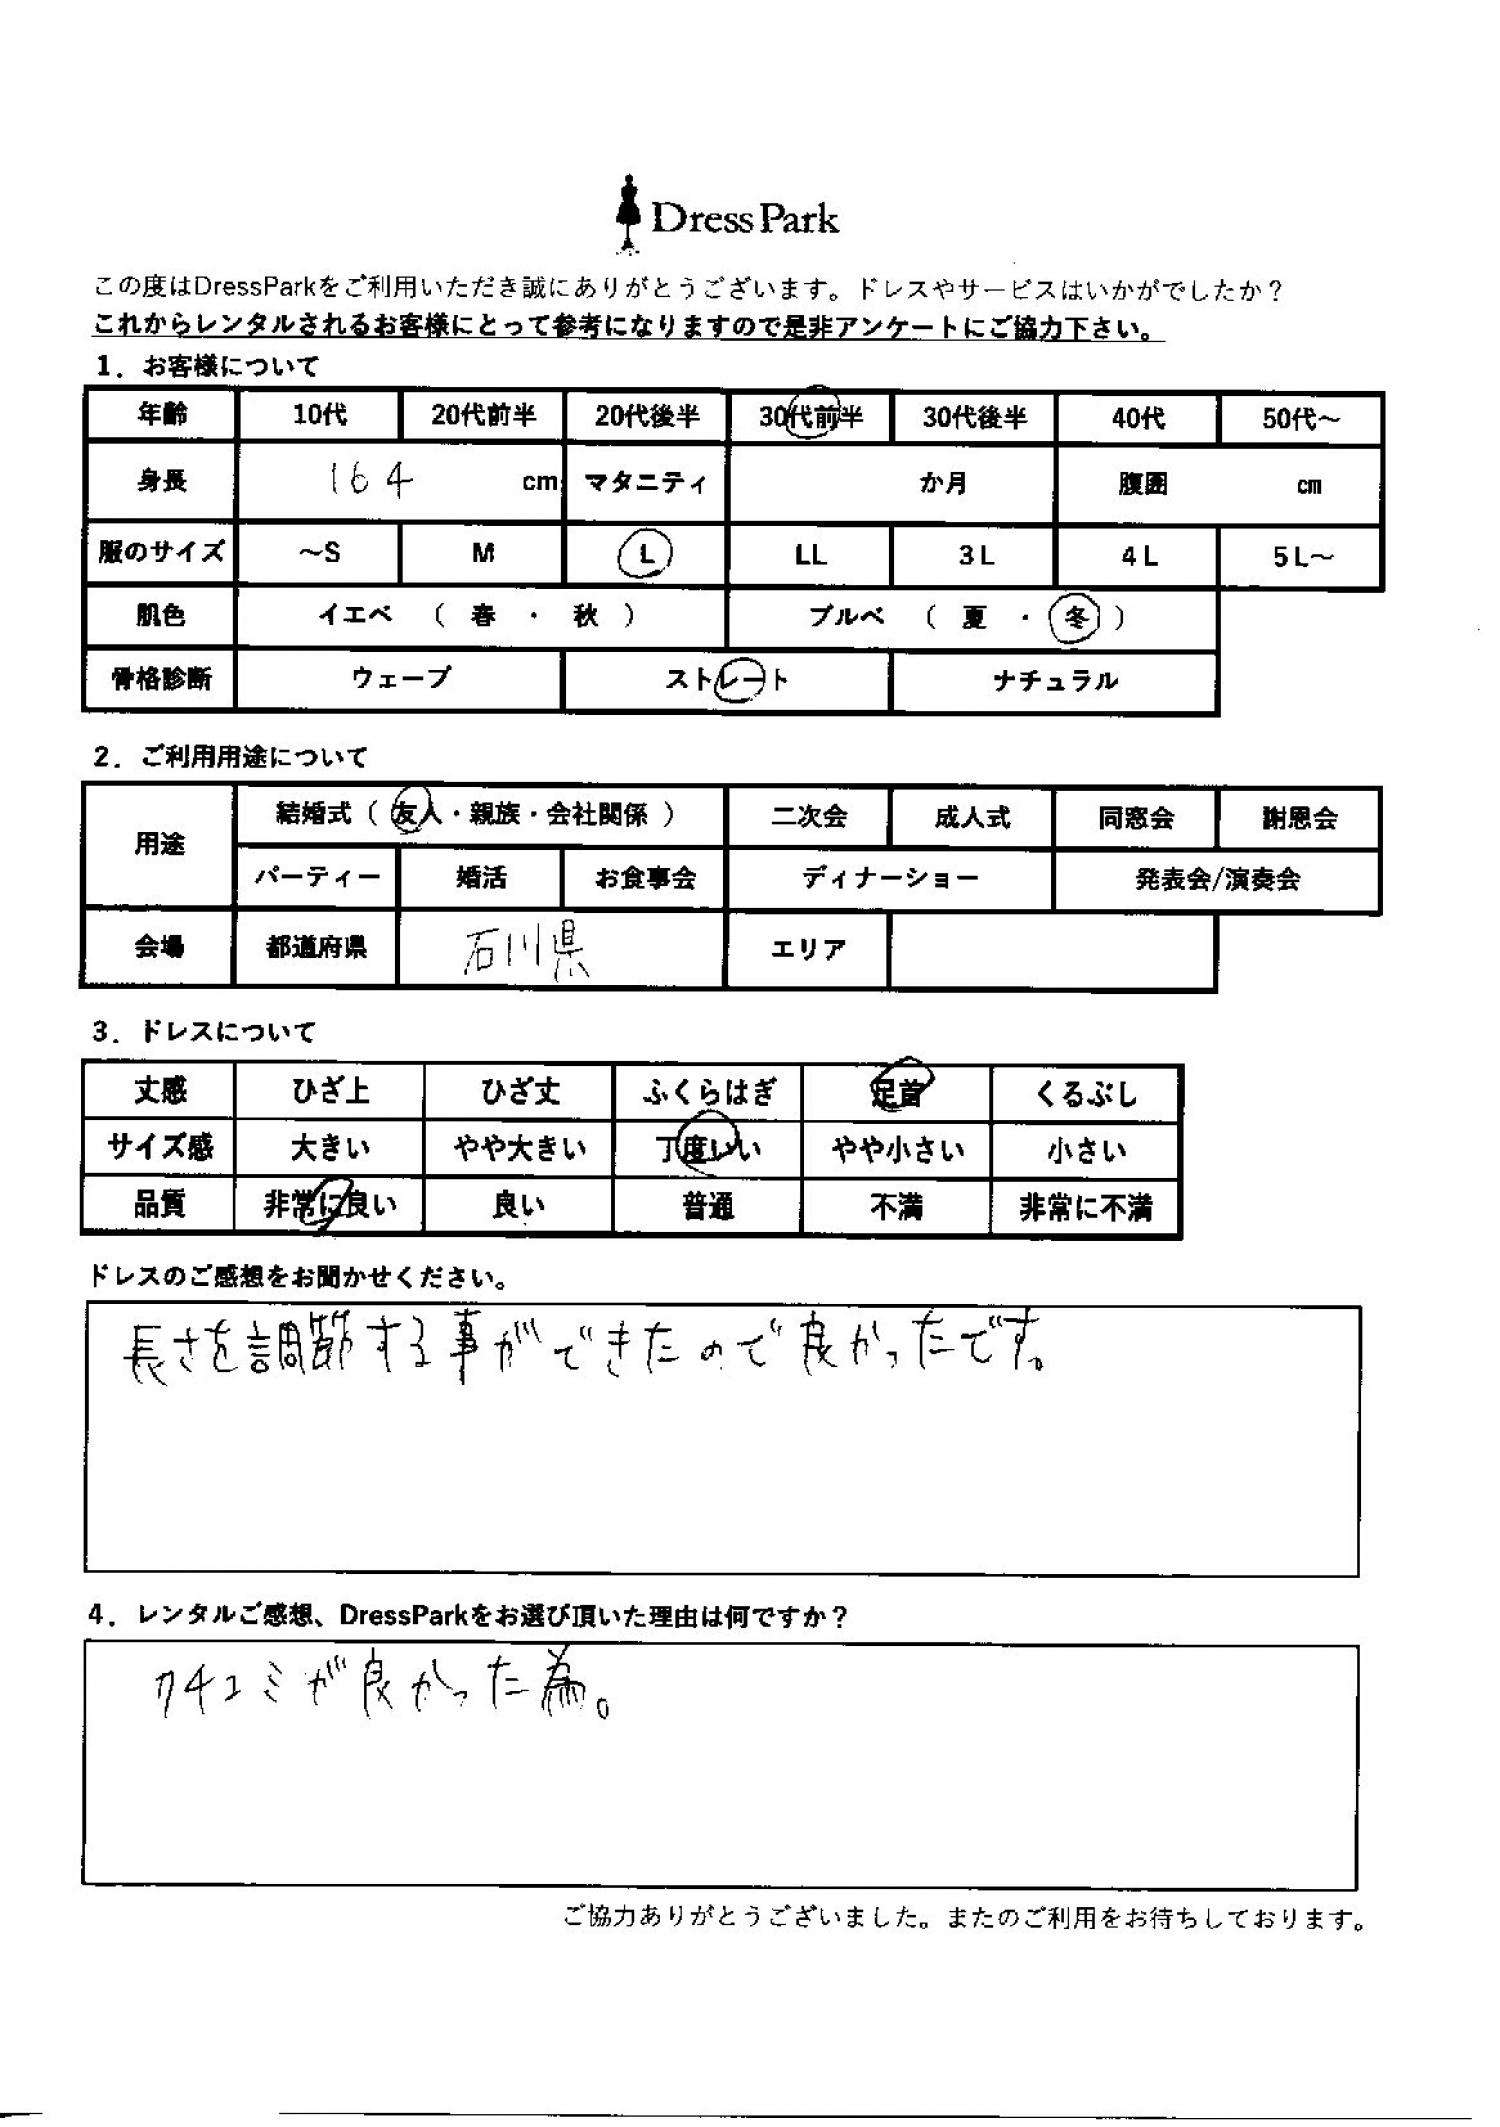 Dress Park
この度はDressParkをご利用いただき誠にありがとうございます。ドレスやサービスはいかがでしたか？
これからレンタルされるお客様にとって参考になりますので是非アンケートにご協力下さい。
1．お客様について
年齢 10代 20代前半 20代後半 30代前半 30代後半 40代 50代～
身長 164 cm マタニティ か月 腹囲 cm
服のサイズ ～S M L LL 3L 4L 5L～
肌色 イエベ （ 春 ・ 秋 ） ブルベ （ 夏 ・ 冬 ）
骨格診断 ウェーブ ストレート ナチュラル
2．ご利用用途について
用途 結婚式（ 友人・親族・会社関係 ） 二次会 成人式 同窓会 謝恩会
パーティー 婚活 お食事会 ディナーショー 発表会/演奏会
会場 都道府県 石川県 エリア
3．ドレスについて
丈感 ひざ上 ひざ丈 ふくらはぎ 足首 くるぶし
サイズ感 大きい やや大きい 丁度いい やや小さい 小さい
品質 非常に良い 良い 普通 不満 非常に不満
ドレスのご感想をお聞かせください。
長さを調節する事ができたので良かったです。
4．レンタルご感想、DressParkをお選び頂いた理由は何ですか？
クチコミが良かった為。
ご協力ありがとうございました。またのご利用をお待ちしております。